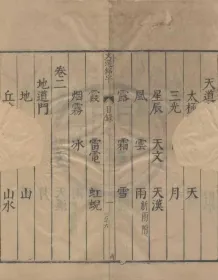 天道
太極 天
三光 月
星辰 天文 天漢
風 雲 雨
露 霜 雪
目錄
霰 雷電 虹蜺
烟霧 冰
卷二
地道門
地 山
丘 山水